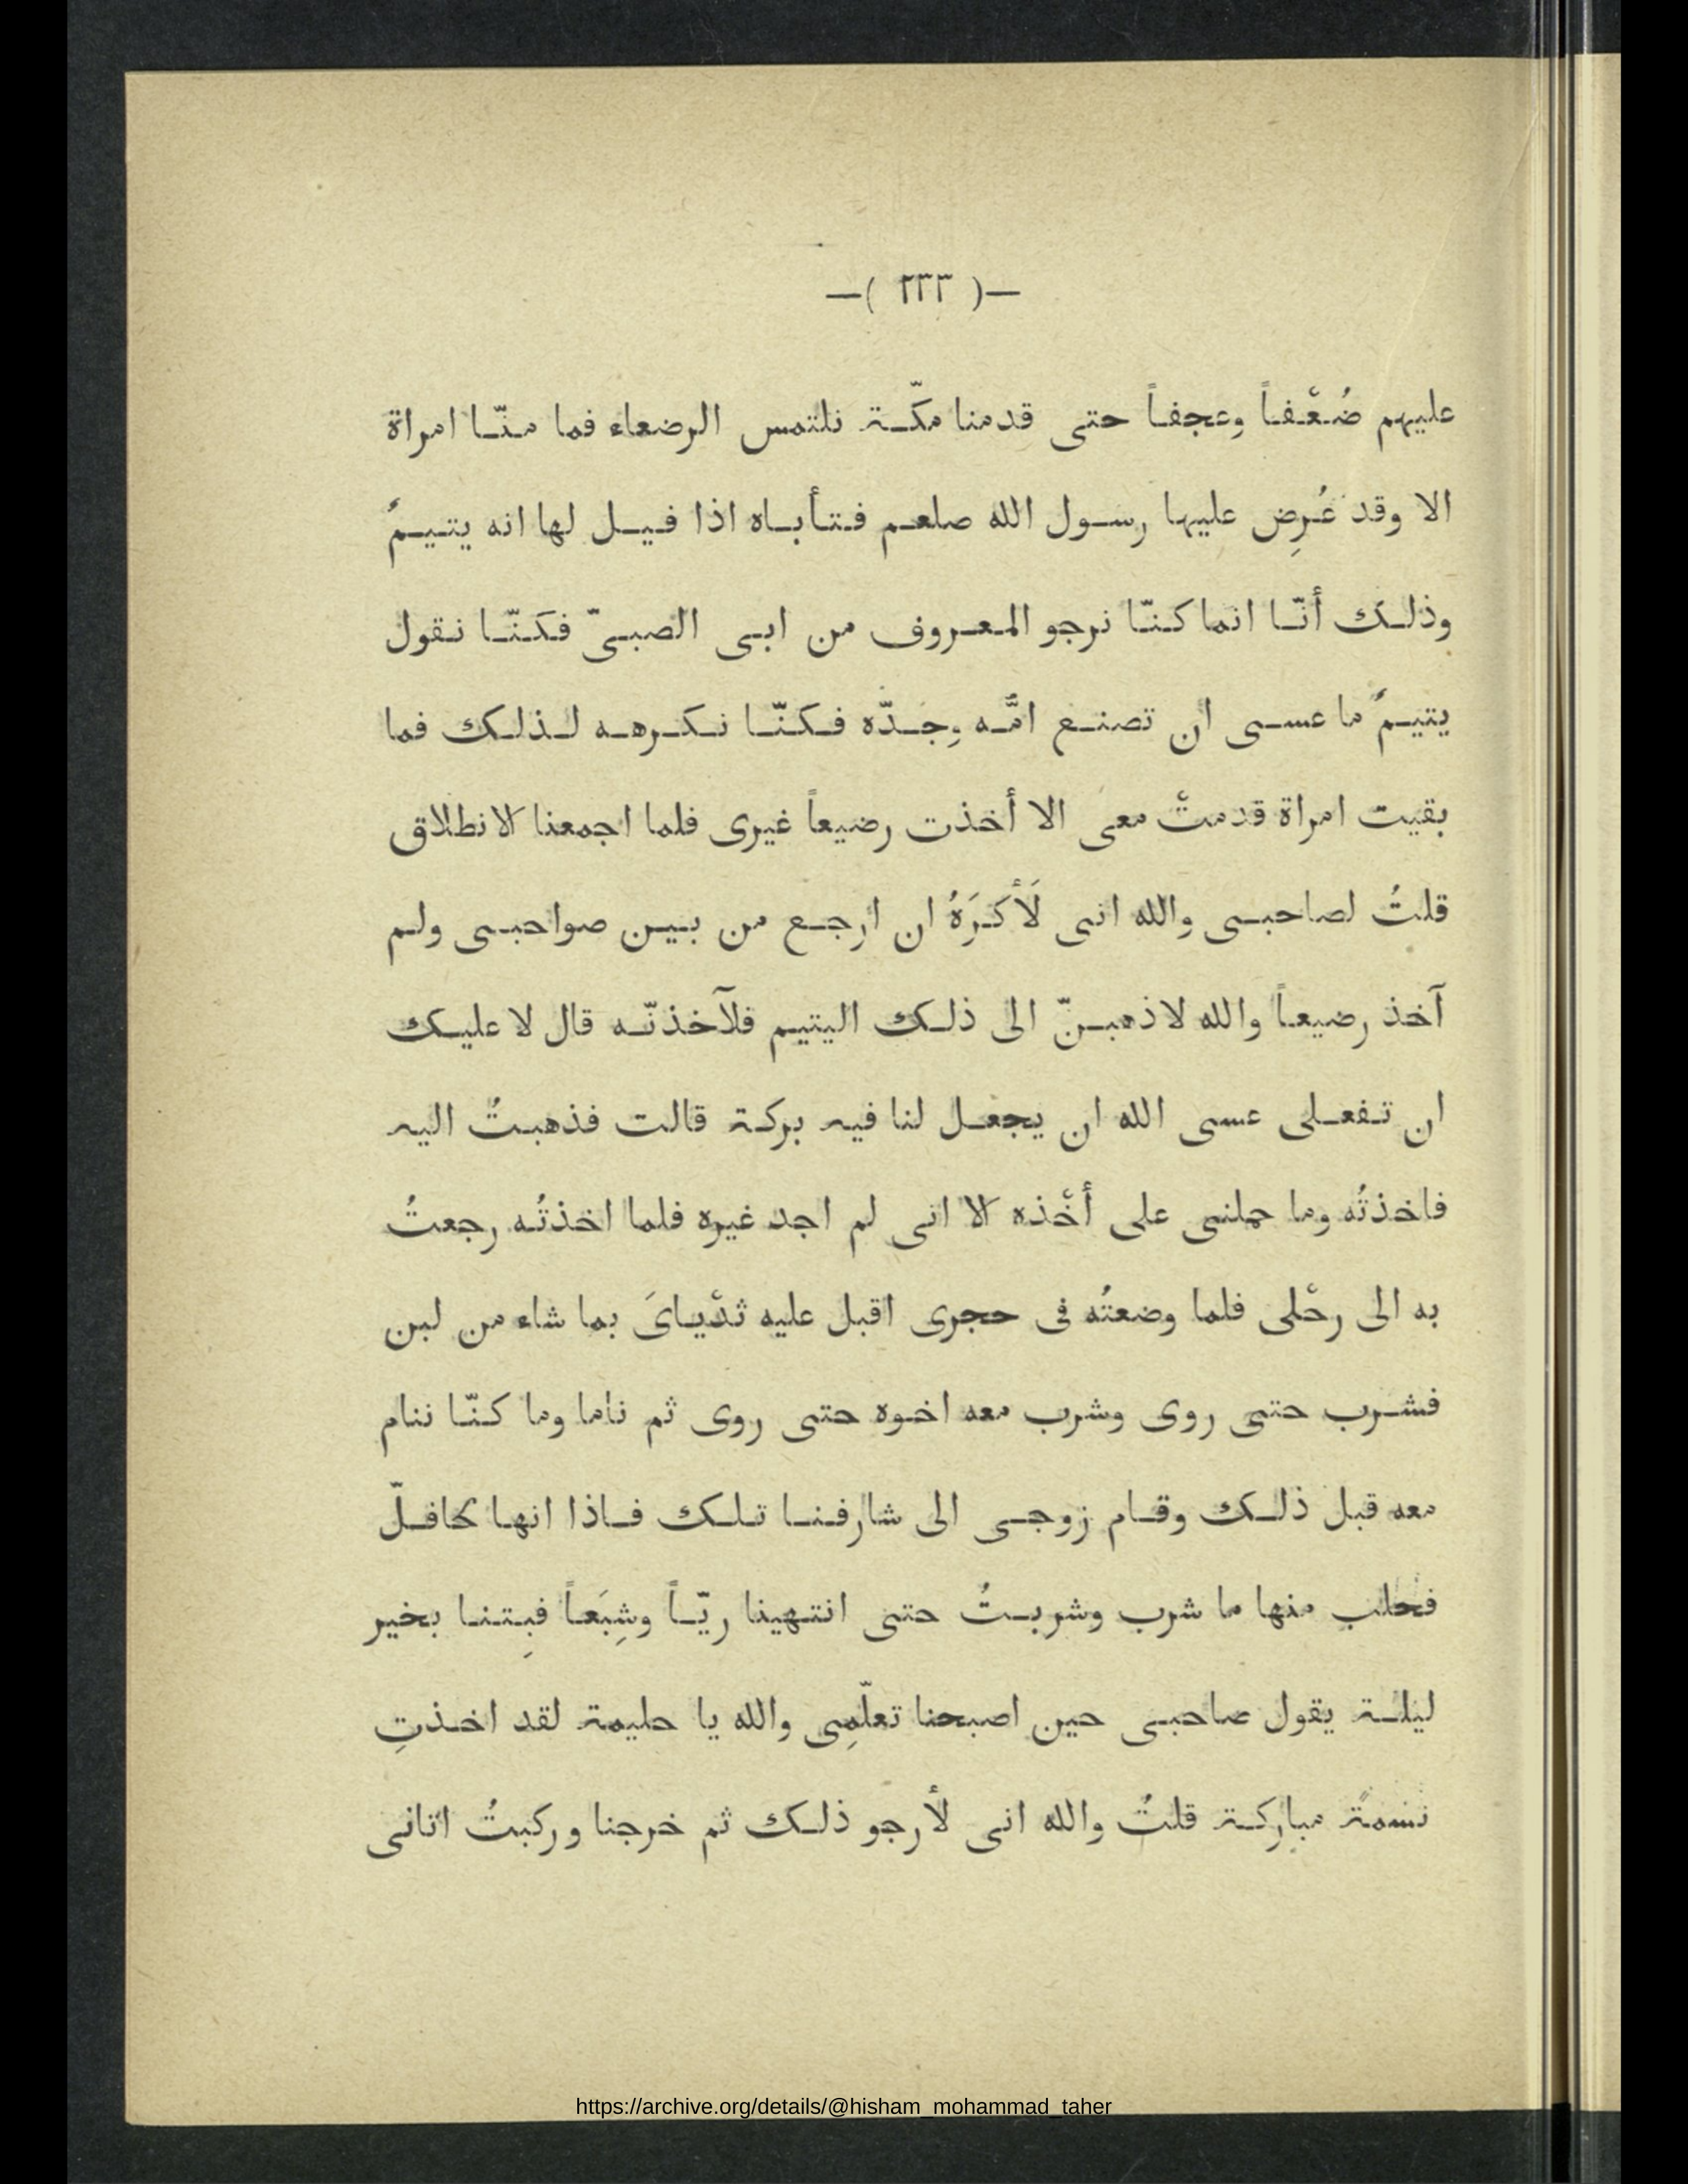 —( ٢٣٣ )—
عليهم ضُعْفاً وعجفاً حتى قدمنا مكّة نلتمس الرضعاء فما منّا امراة
الا وقد عُرِض عليها رسول الله صلعم فتأباه اذا قيل لها انه يتيمٌ
وذلك أنّا انما كنّا نرجو المعروف من ابى الصبىّ فكنّا نقول
يتيمٌ ما عسى ان تصنع امّه وجدّه فكنّا نكرهه لذلك فما
بقيت امراة قدمتْ معى الا أخذت رضيعاً غيرى فلما اجمعنا الانطلاق
قلتُ لصاحبى والله انى لَأَكْرَهُ ان ارجع من بين صواحبى ولم
آخذ رضيعاً والله لاذهبنّ الى ذلك اليتيم فلآخذنّه قال لا عليك
ان تفعلى عسى الله ان يجعل لنا فيه بركة قالت فذهبتُ اليه
فاخذتُه وما حملنى على أخْذه الا انى لم اجد غيره فلما اخذتُه رجعتُ
به الى رحْلى فلما وضعتُه فى حجرى اقبل عليه ثدْياىَ بما شاء من لبن
فشرب حتى روى وشرب معه اخوه حتى روى ثم ناما وما كنّا ننام
معه قبل ذلك وقام زوجى الى شارفنا تلك فاذا انها لحافلّ
فحلب منها ما شرب وشربتُ حتى انتهينا ريّاً وشِبَعاً فبِتنا بخير
ليلة يقول صاحبى حين اصبحنا تعلّمِى والله يا حليمة لقد اخذتِ
نسمةً مباركة قلتُ والله انى لأرجو ذلك ثم خرجنا وركبتُ اتانى
https://archive.org/details/@hisham_mohammad_taher